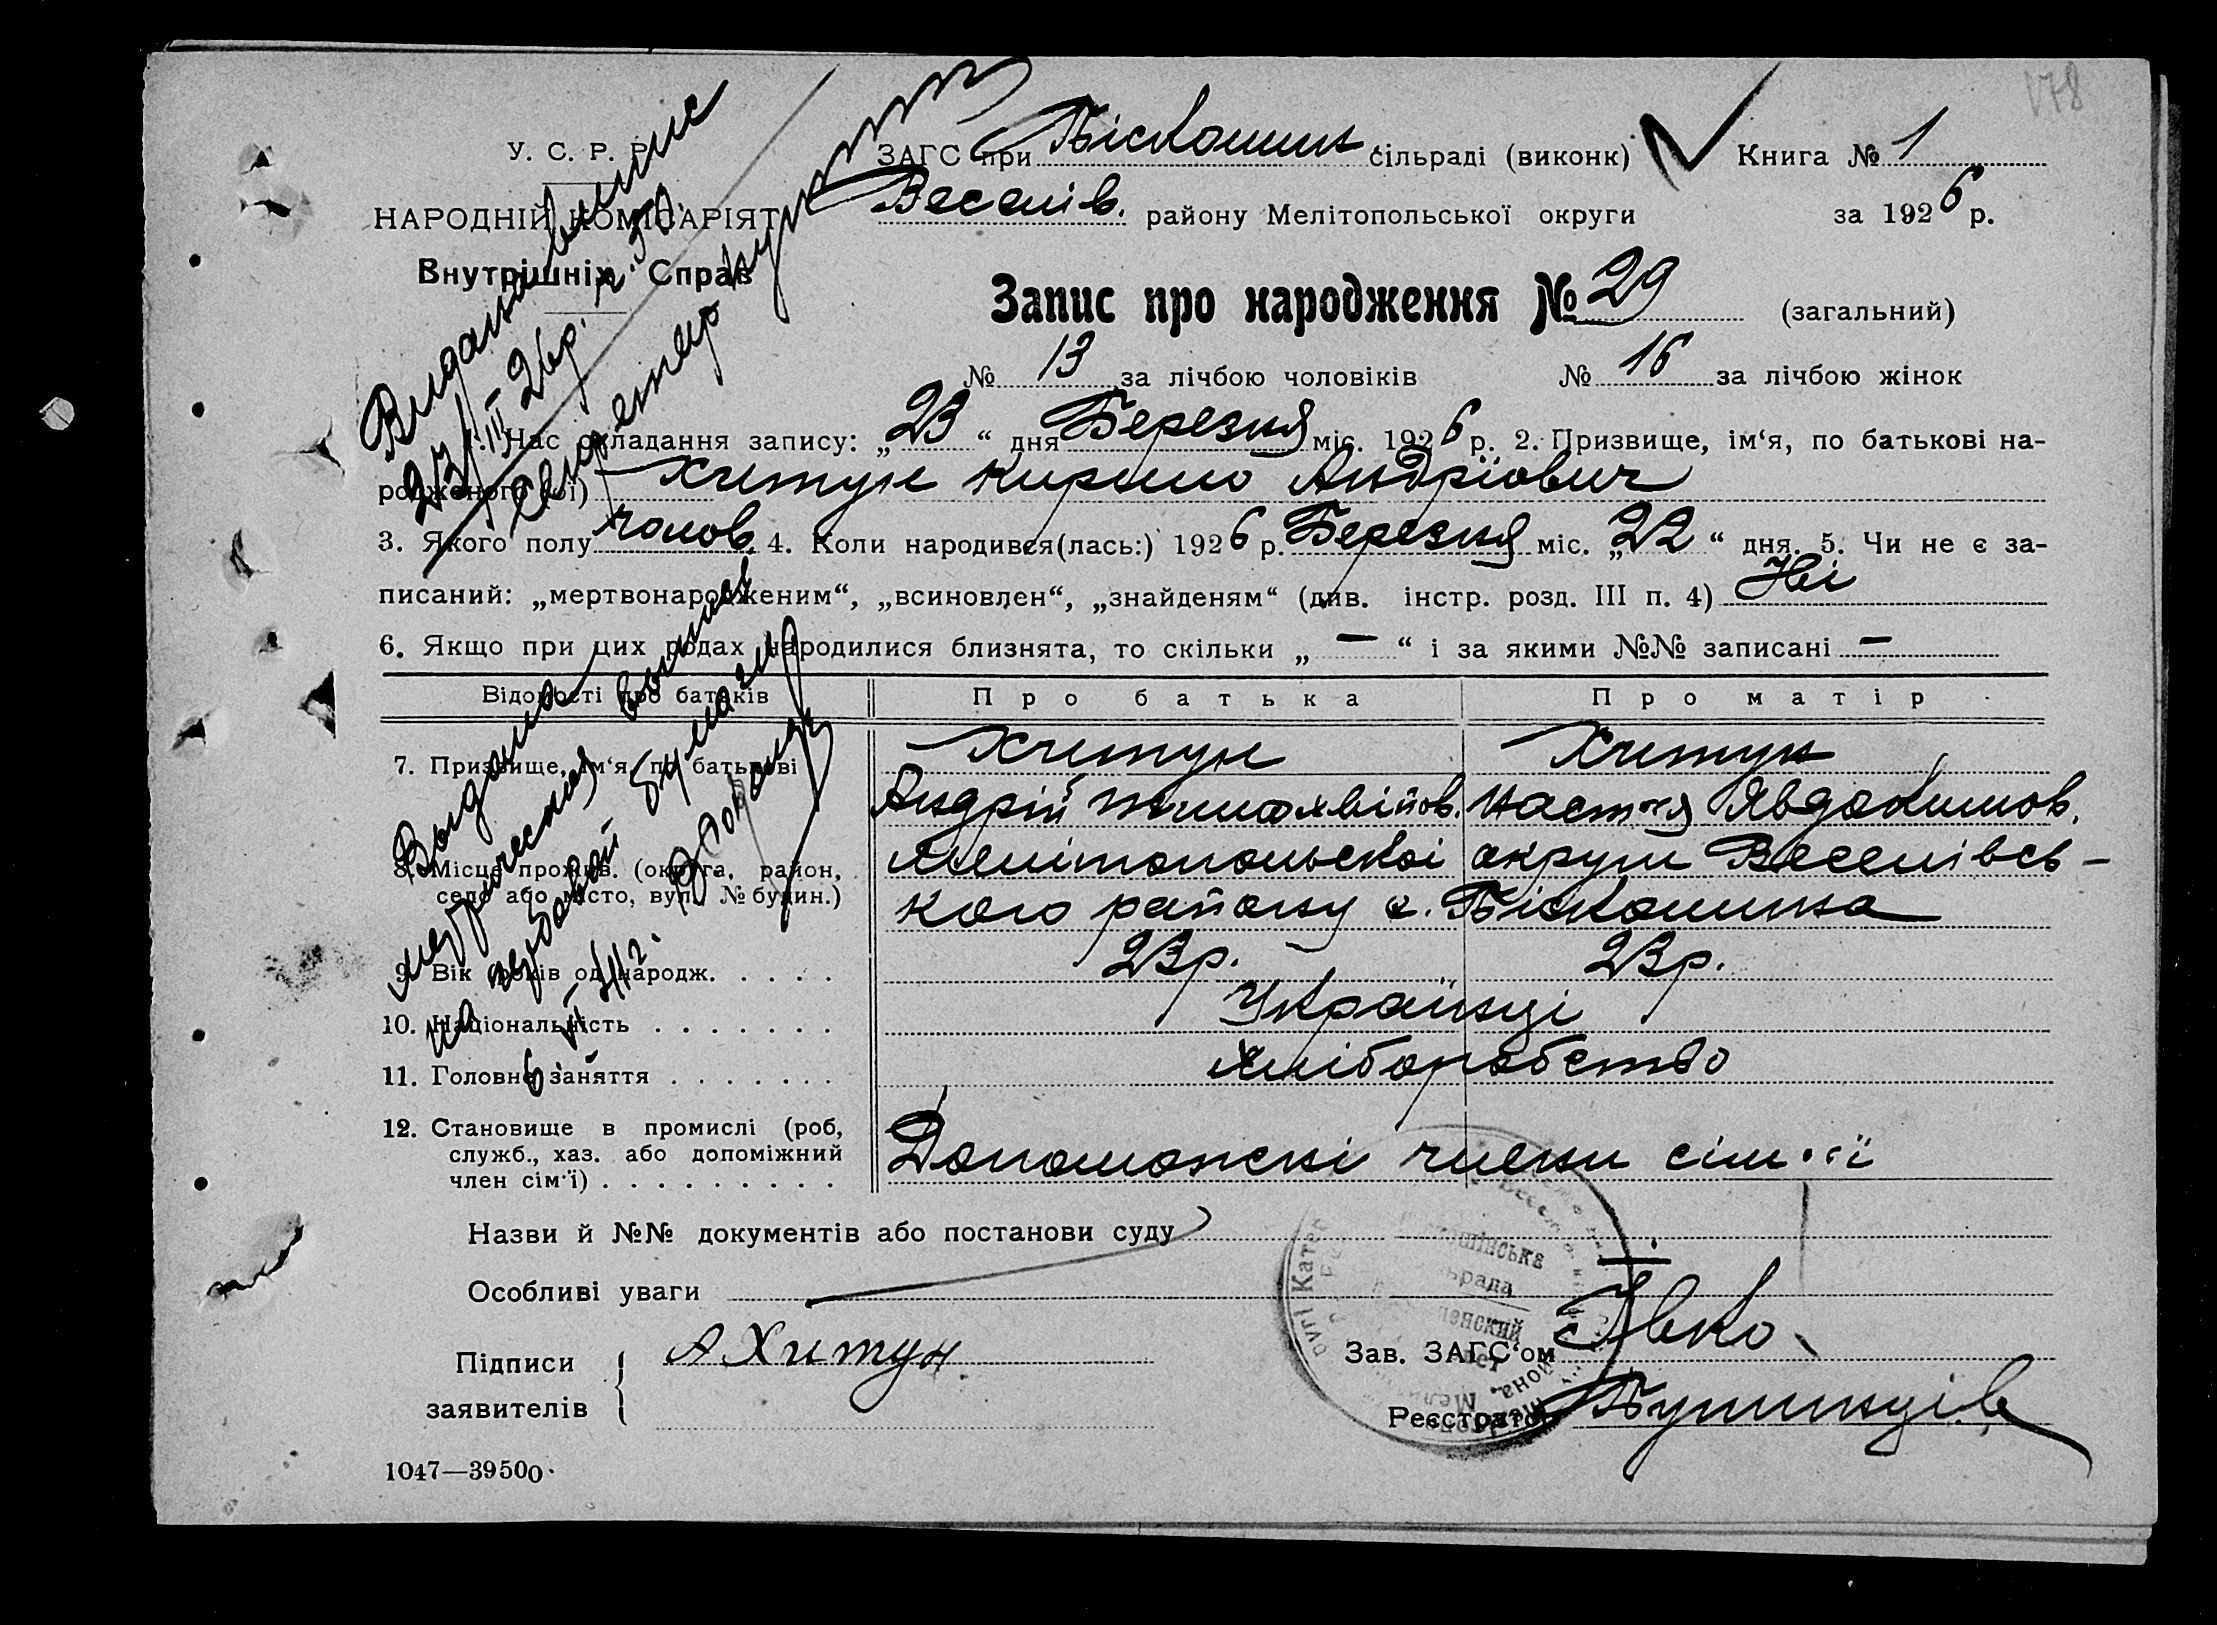 178
У. С. Р. Р.
ЗАГС при Біскошин. сільраді (виконк) Книга № 1
НАРОДНІЙ КОМІСАРІЯТ
Веселів. району Мелітопольської округи за 1926 р.
Внутрішніх Справ
Запис про народження № 29 (загальний)
№ 13 за лічбою чоловіків № 16 за лічбою жінок
1. Час складання запису: „23“ дня Березня міс. 1926 р. 2. Призвище, ім‘я, по батькові на-
родженого (ої) Хитун Кирило Андріович
3. Якого полу чолов. 4. Коли народився(лась:) 1926 р. Березня міс. „22“ дня. 5. Чи не є за-
писаний: „мертвонародженим“, „всиновлен“, „знайденям“ (див. інстр. розд. III п. 4) Ні
6. Якщо при цих родах народилися близнята, то скільки „ — “ і за якими №№ записані —
Відомості про батьків Про батька Про матір
7. Призвище, ім‘я, по батькові Хитун Хитун
Андрій Тимохвійов. Настя Явдокимов.
8. Місце прожив. (округа, район, Мелітопольскоі округи Веселівсь-
село або місто, вул. № будин.) кого району с. Біскошина
9. Вік років од народж. . . . . 23р. 23р.
10. Національність . . . . . . . Українці
11. Головне заняття . . . . . . . Хліборобство
12. Становище в промислі (роб,
служб., хаз. або допоміжний Допоможскі члени сім'ї
член сім‘ї) . . . . . . . . .
Назви й №№ документів або постанови суду
Особливі уваги
Підписи А Хитун Зав. ЗАГС‘ом Явко
заявителів Реєстратор
1047—39500.
Видана
23/III 26р.
Секретар
Выдана выпись
метрическая
на гербовой бумаге
6 VI